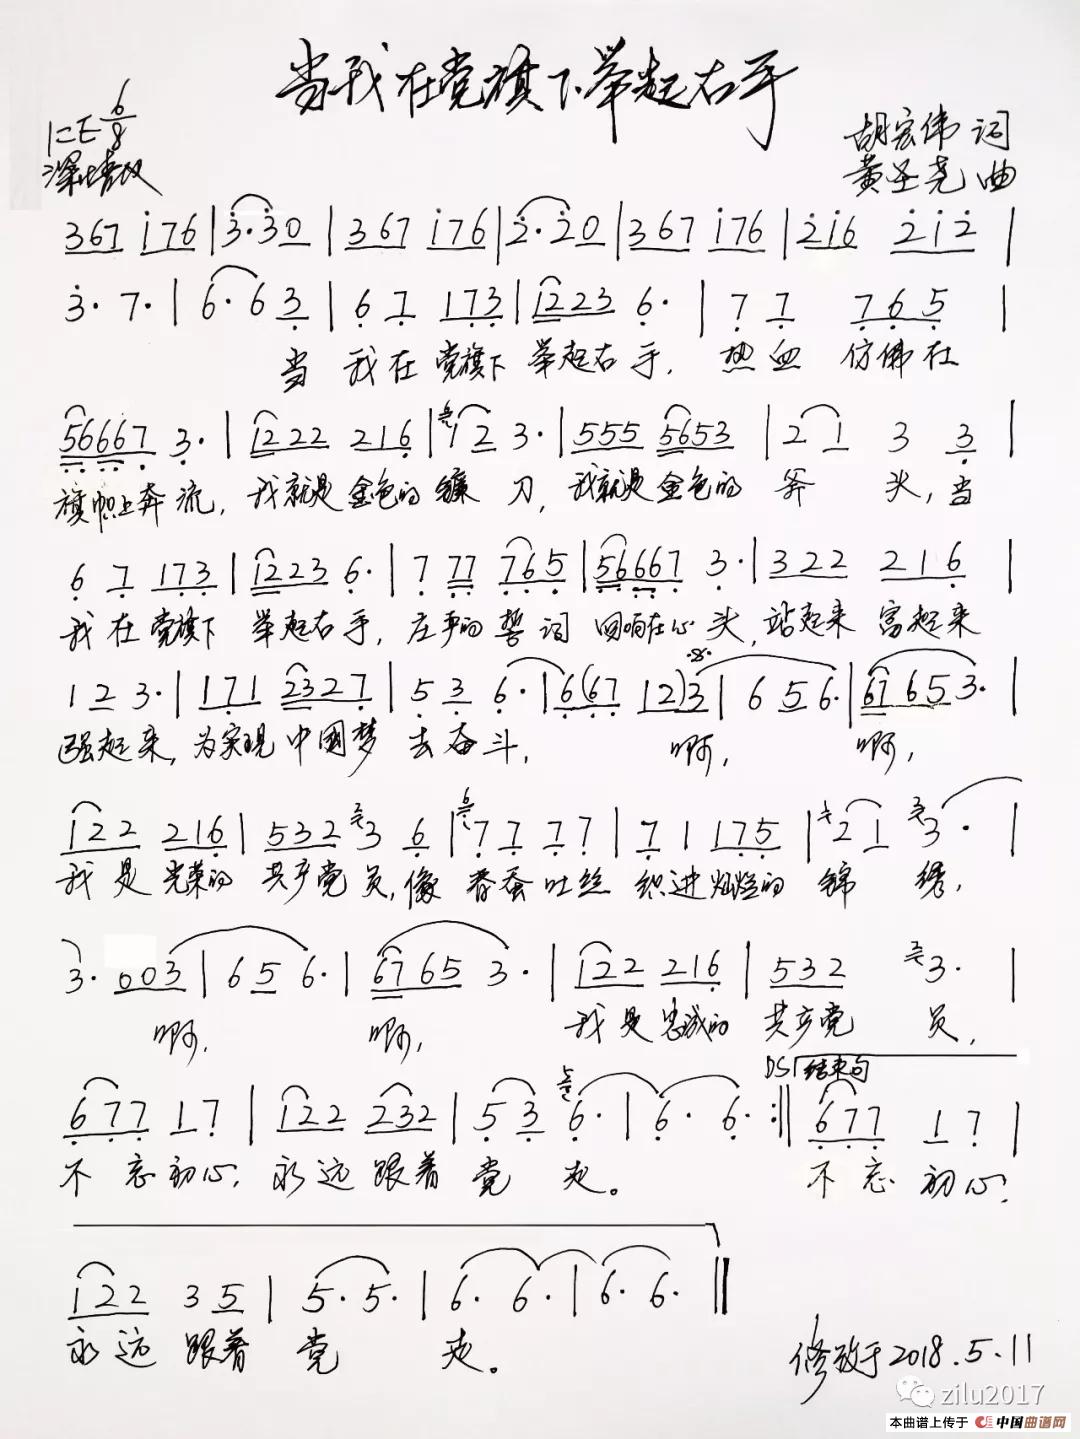 当我在党旗下举起右手
1=E 6/8
深情赞叹
胡宏伟 词
黄圣尧 曲
367 i76 | 3·30 | 367 i76 | 2·20 | 367 i76 | 2i6 2i2 |
3· 7· | 6·63 | 67 173 | 1223 6· | 77 765 |
当 我在党旗下 举起右手, 热血 仿佛在
56667 3· | 1222 216 | 12 3· | 555 5653 | 21 3 3 |
旗帜上奔流, 我就是金色的镰刀, 我就是金色的斧头, 当
67 173 | 1223 6· | 777 765 | 56667 3· | 322 216 |
我在党旗下 举起右手, 庄严的誓词 回响在心头, 站起来 富起来
12 3· | 171 2327 | 53 6· | 6(67 12)3 | 656· | 6765 3· |
强起来, 为实现中国梦 去奋斗, 啊, 啊,
122 216 | 532 3 6 | 77 77 | 71 175 | 21 3· |
我是光荣的 共产党员, 像春蚕吐丝 织进灿烂的锦绣,
3· 003 | 656· | 6765 3· | 122 216 | 532 3· |
啊, 啊, 我是忠诚的 共产党员,
DS 结束句
677 17 | 122 232 | 53 6· | 6· 6· :‖ 677 17 |
不忘初心, 永远跟着党走。 不忘初心,
122 35 | 5· 5· | 6· 6· | 6· 6· ‖
永远跟着党走。
修改于2018.5.11
zilu2017
本曲谱上传于 中国曲谱网